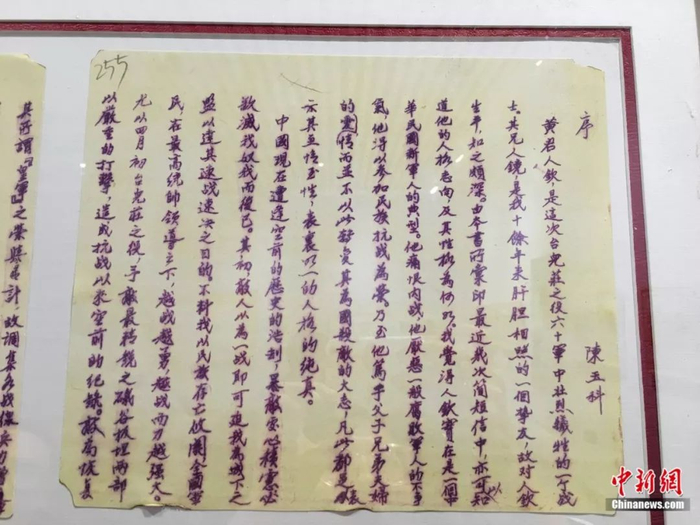 序
陳玉科
黄君人欽，是這次台兒莊之役六十軍中壯烈犧牲的一个战
士。其兄人镜是我十餘年来肝胆相照的一个摯友，故对人欽
生平，知之頗深。由本書所彙印最近幾次簡短信中，亦可以知
道他的人格志向，及其性格為何如，我覺得人欽實在是一個中
華民國新軍人的典型。他痛恨内战，他厭惡一般腐敗軍人的
氣，他得以參加民族抗战為榮，乃至他篤于父子兄弟夫婦
的情而並不以此其為國殺敵的大志，凡此都足以
示其至情至性，表裏如一的人格的純真。
中國現在遭逢空前的歷史的浩刧，暴敵處心積慮必
欲滅我奴我而後已。其初敵人以為一战即可迫我為城下之
盟以達其速战速决之目的。不料我以民族存亡攸關全國軍
民，在最高統帥領導之下，越战越勇，越战而力越强大。
尤以四月初台兒莊之役，予敵最精銳之磯谷板垣两部
以嚴重的打擊，造成抗战以来空前的纪錄。敵為恢复
其所謂「皇軍」之榮計，故調集各战
255
中新網
Chinanews.com